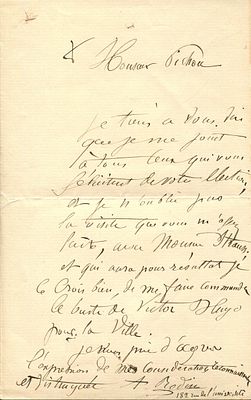 Monsieur Pichon
je tiens à vous dire
que je me joint
à tous ceux qui vous
félicitent de votre élection,
et je n'oublie pas
la visite que vous m'avez
faite, avec Monsieur
et qui aura pour résultat je
le crois bien, de me faire commander
le buste de Victor Hugo
pour la Ville.
je vous prie d'agréer
l'expression de ma considération reconnaissante
et distinguée
A Rodin
182 rue de l'université